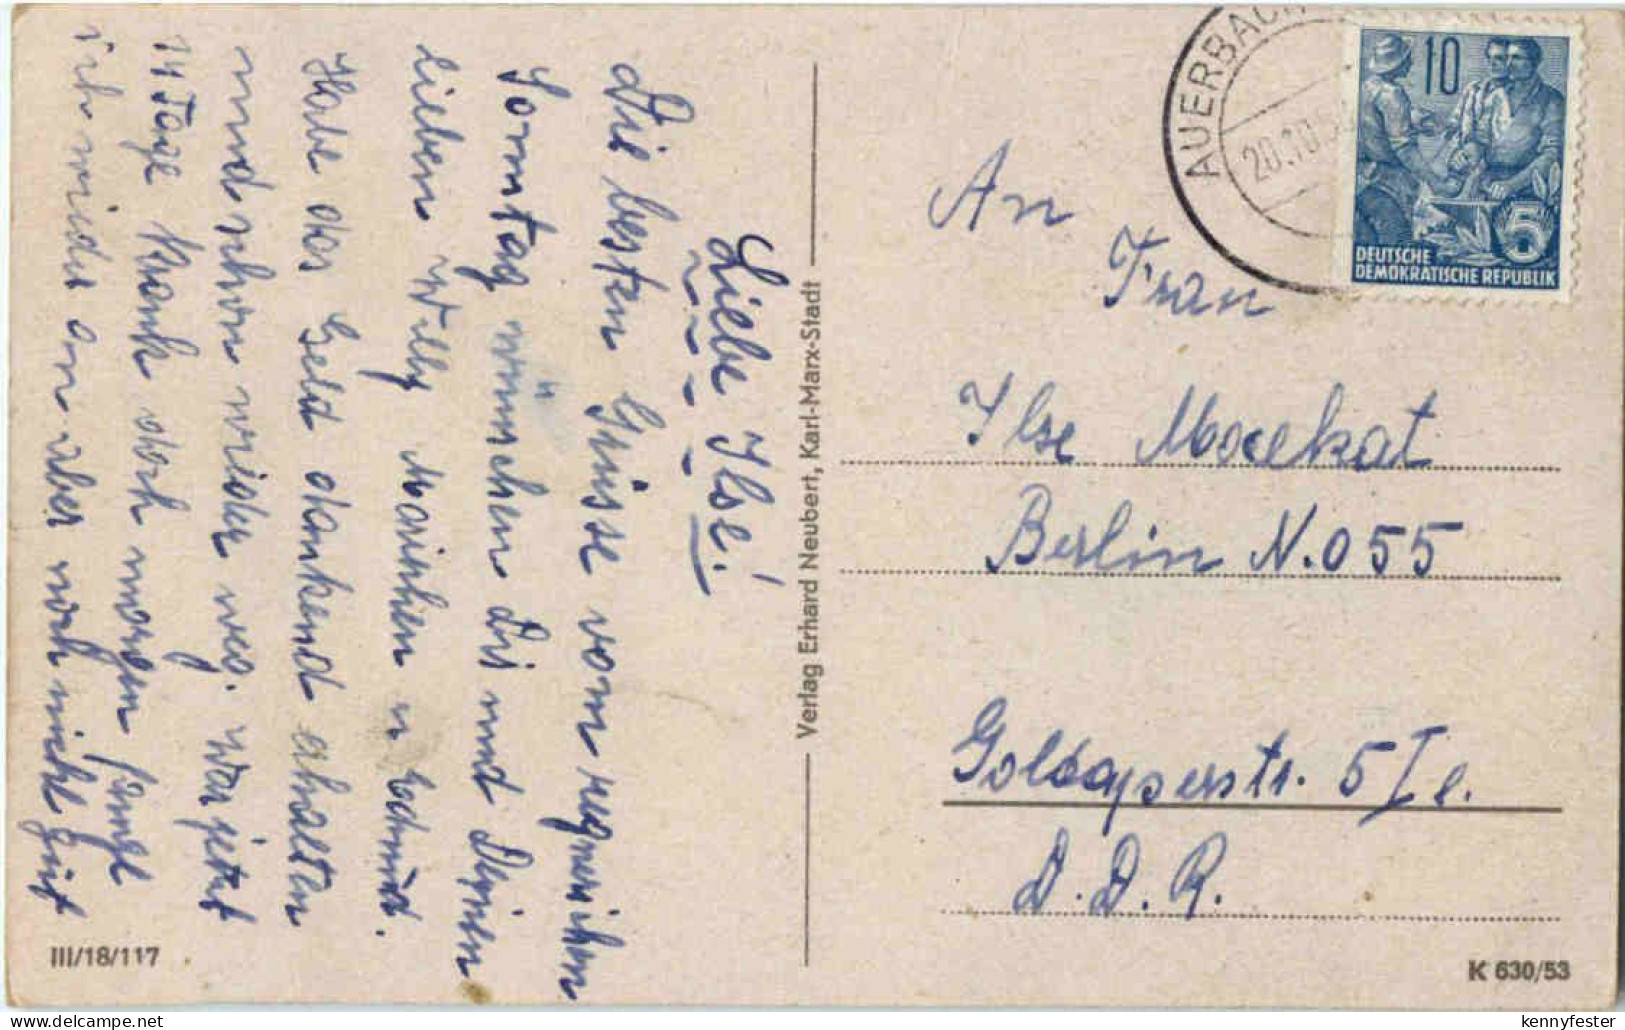 Liebe Ilse!
Die besten Grüsse vom regnerischen
Sonntag wünschen Dir und Deinen
lieben Willy Marinchen u
Habe das Geld dankend erhalten
und schon wieder weg. War jetzt
14 Tage Krank doch morgen fange
ich wieder an aber noch nicht gut
III/18/117
Verlag Erhard Neubert, Karl-Marx-Stadt
AUERBACH
20.10.5
10
5
DEUTSCHE
DEMOKRATISCHE REPUBLIK
An
Frau
Ilse Mocekat
Berlin N.O55
Goldaperstr. 5 I l.
D.D.R.
K 630/53
kennyfester